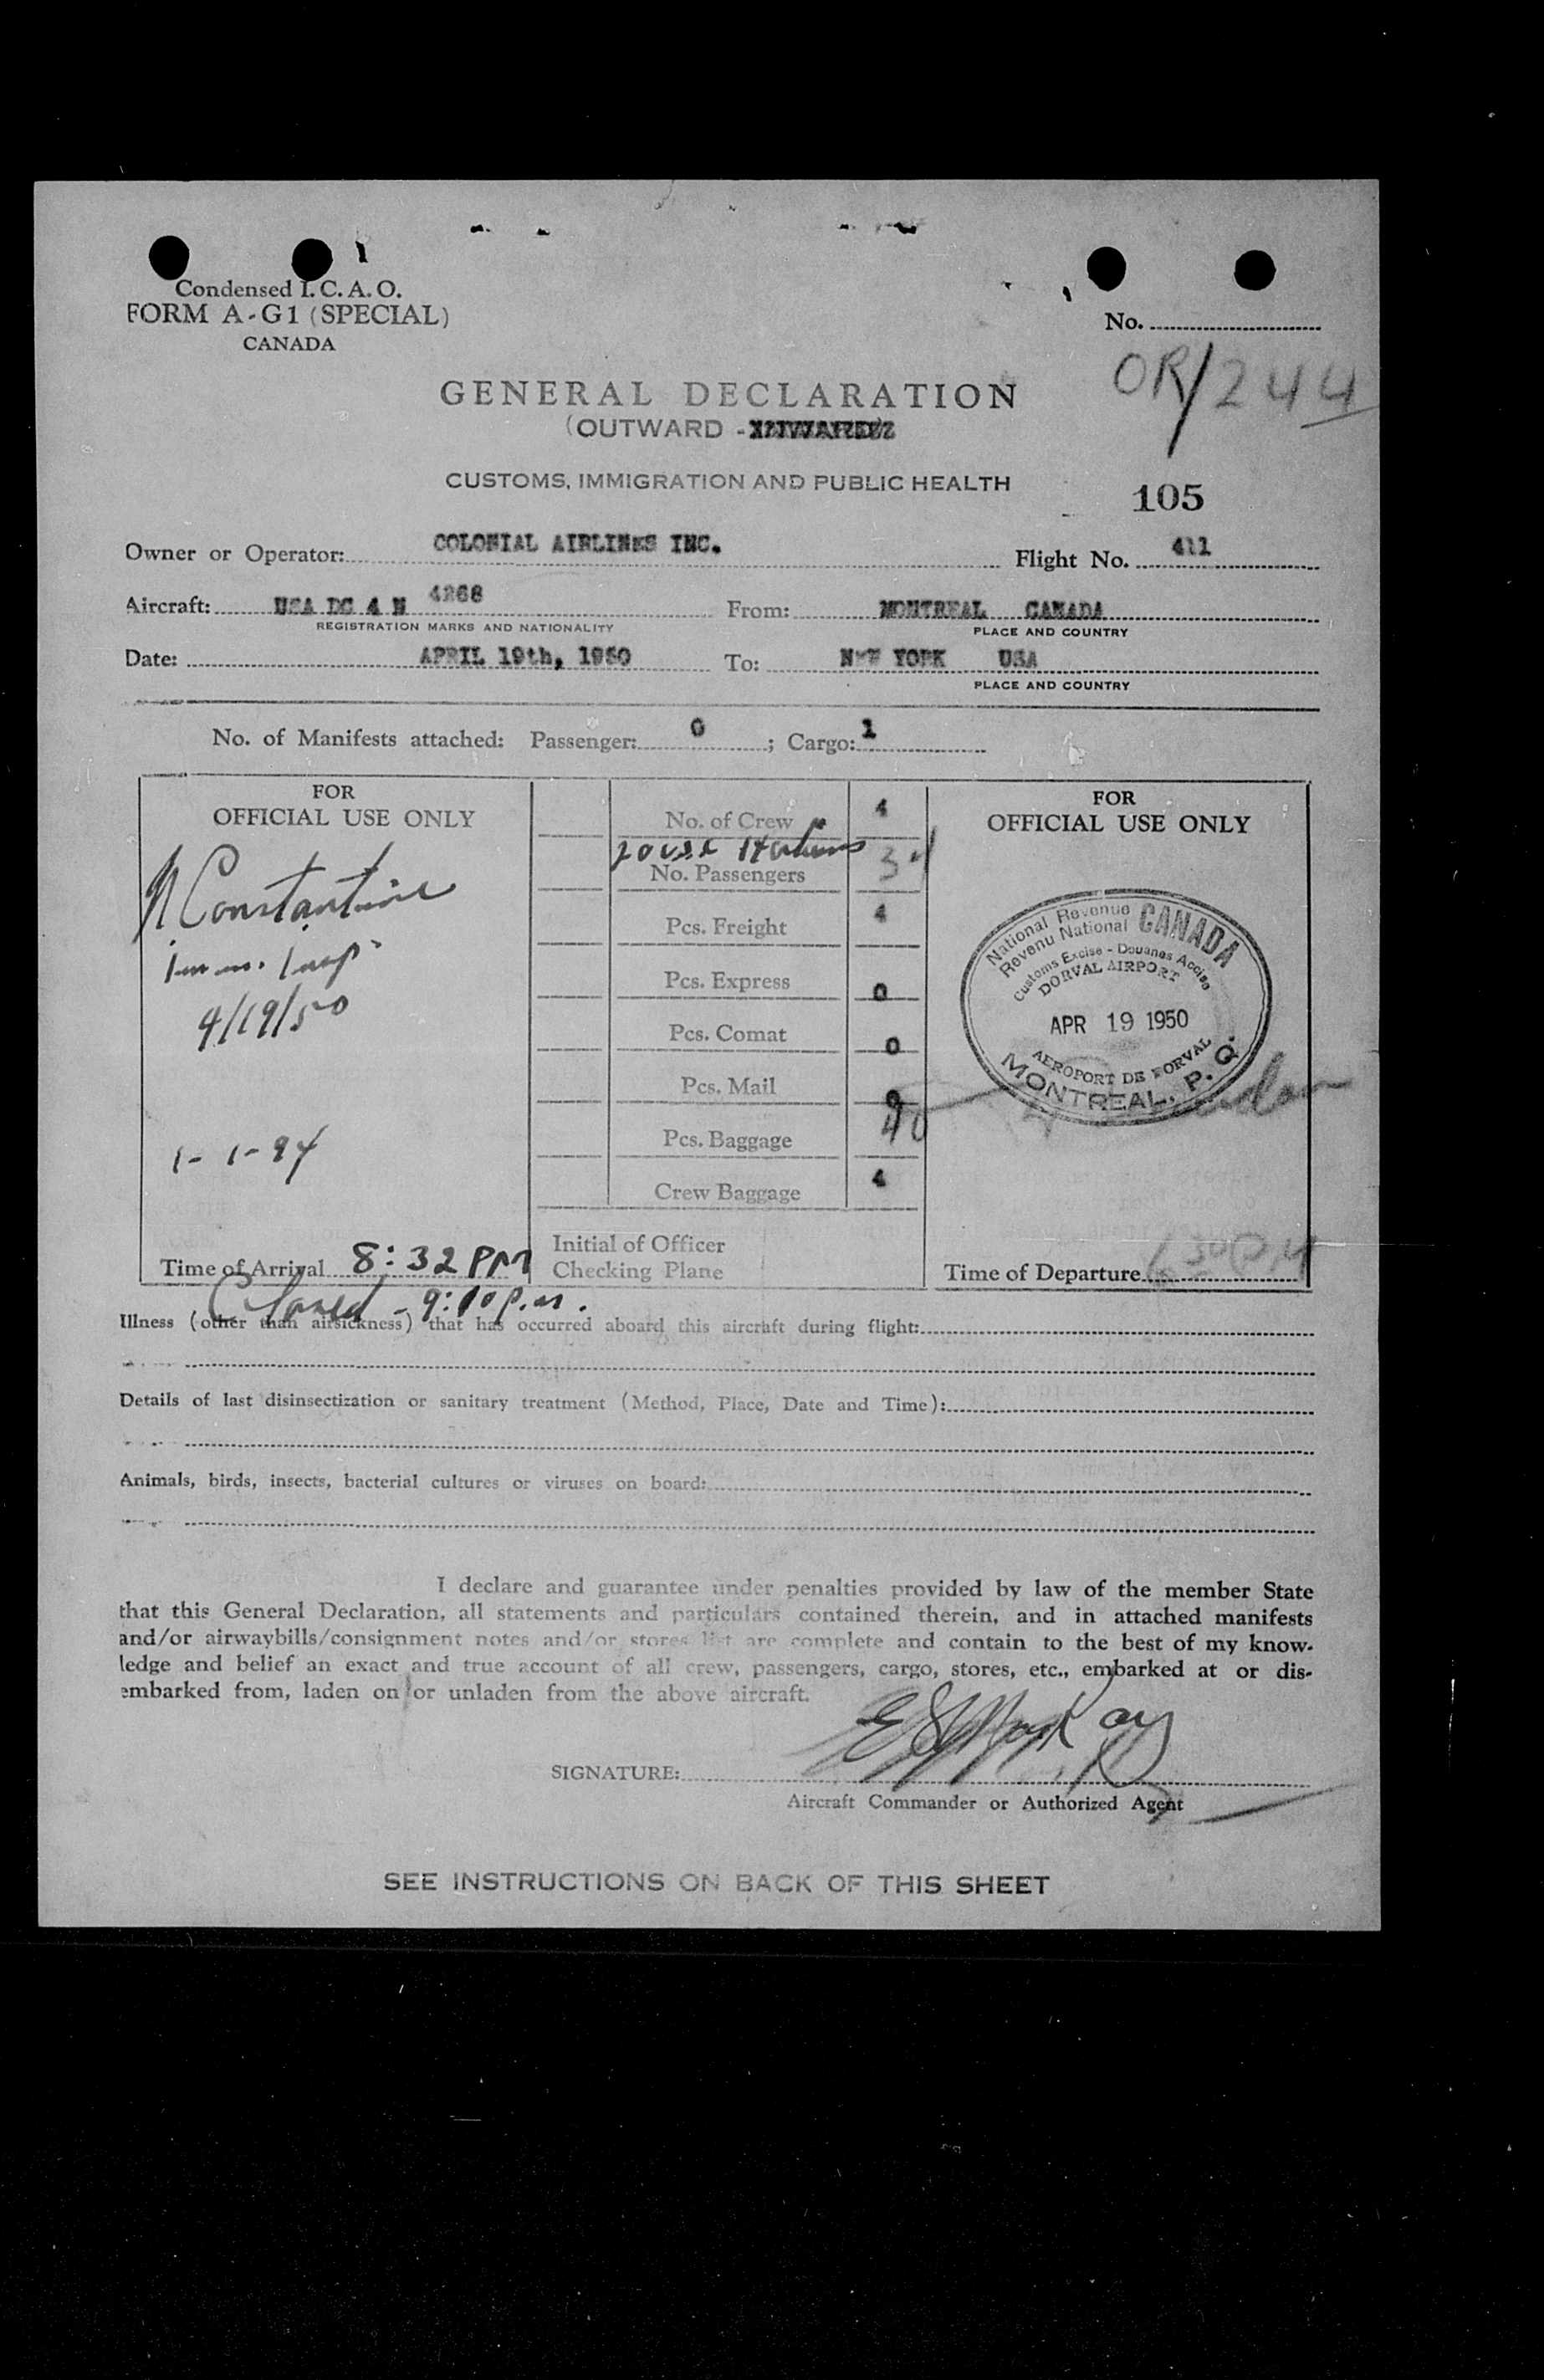 Condensed I.C.A.O.
FORM A-G1 (SPECIAL)
CANADA
No.
OR/244
GENERAL DECLARATION
(OUTWARD -
CUSTOMS, IMMIGRATION AND PUBLIC HEALTH
105
Owner or Operator: COLONIAL AIRLINES INC. Flight No. 411
Aircraft: USA DC 4 N 4268 From: MONTREAL CANADA
REGISTRATION MARKS AND NATIONALITY PLACE AND COUNTRY
Date: APRIL 19th, 1950 To: NEW YORK USA
PLACE AND COUNTRY
No. of Manifests attached: Passenger: 0 ; Cargo: 1
FOR
OFFICIAL USE ONLY
N Constantine
Imm. Insp
4/19/50
1-1-94
Time of Arrival 8:32 PM
Closed - 9:10 p.m.
No. of Crew 4
No. Passengers
Pcs. Freight 4
Pcs. Express 0
Pcs. Comat 0
Pcs. Mail
Pcs. Baggage 40
Crew Baggage 4
Initial of Officer
Checking Plane
FOR
OFFICIAL USE ONLY
National Revenue
Revenu National
CANADA
Customs Excise - Douanes Accise
DORVAL AIRPORT
APR 19 1950
AEROPORT DE DORVAL
MONTREAL, P. Q.
Time of Departure
Illness (other than airsickness) that has occurred aboard this aircraft during flight:
Details of last disinsectization or sanitary treatment (Method, Place, Date and Time):
Animals, birds, insects, bacterial cultures or viruses on board:
I declare and guarantee under penalties provided by law of the member State
that this General Declaration, all statements and particulars contained therein, and in attached manifests
and/or airwaybills/consignment notes and/or stores list are complete and contain to the best of my know-
ledge and belief an exact and true account of all crew, passengers, cargo, stores, etc., embarked at or dis-
embarked from, laden on or unladen from the above aircraft.
SIGNATURE:
Aircraft Commander or Authorized Agent
SEE INSTRUCTIONS ON BACK OF THIS SHEET